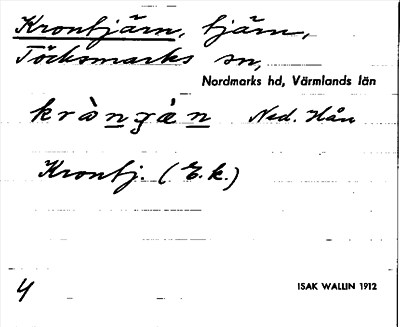 Krontjärn, tjärn,
Töcksmarks sn,
Nordmarks hd, Värmlands län
Ned. Hån
Krontj. (E.k.)
4
ISAK WALLIN 1912